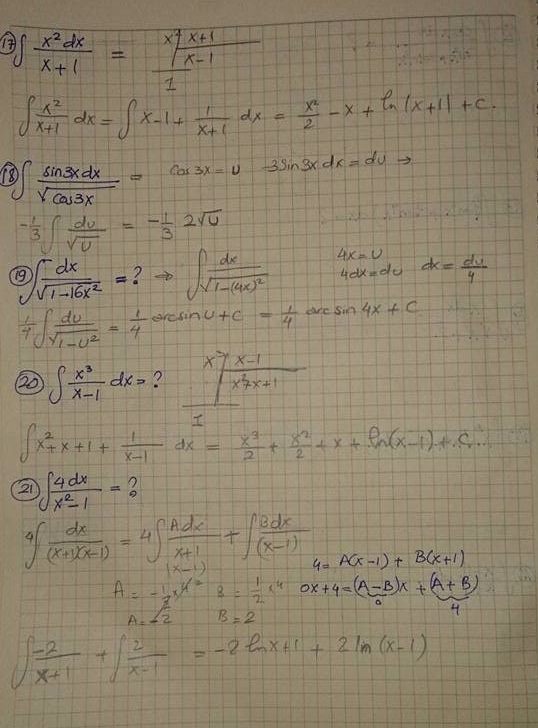 17) ∫ x² dx / x+1 = x² | x+1
x-1
1
∫ x²/x+1 dx = ∫ x-1 + 1/x+1 dx = x²/2 - x + ln|x+1| + c.
18) ∫ sin3x dx / √cos3x = cos3x = u -3sin3x dx = du →
-1/3 ∫ du/√u = -1/3 2√u
19) ∫ dx/√1-16x² = ? ⇒ ∫ dx/√1-(4x)² 4x = u
4dx = du dx = du/4
1/4 ∫ du/√1-u² = 1/4 arcsin u + c = 1/4 arcsin 4x + c
20) ∫ x³/x-1 dx = ? x³ | x-1
x²+x+1
1
∫ x²+x+1 + 1/x-1 dx = x³/2 + x²/2 + x + ln(x-1) + c.
21) ∫ 4dx/x²-1 = ?
4∫ dx/(x+1)(x-1) = 4∫ A dx/x+1 + ∫ B dx/(x-1)
(x-1)
4 = A(x-1) + B(x+1)
0x+4 = (A-B)x + (A+B)
0 4
B = 1/2 x4
A = -2 B = 2
∫ -2/x+1 + ∫ 2/x-1 = -2 ln x+1 + 2 ln (x-1)